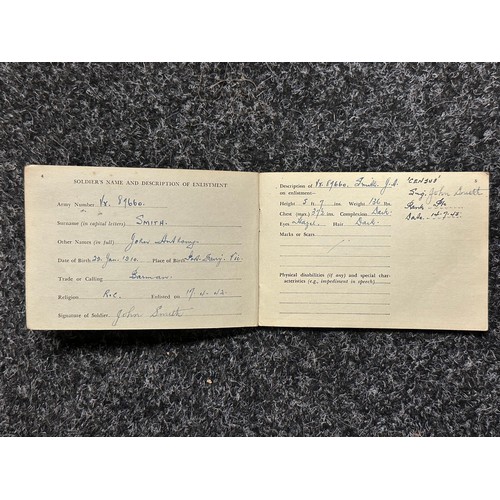 4
SOLDIER'S NAME AND DESCRIPTION ON ENLISTMENT
Army Number Vx. 89660.
Surname (in capital letters) SMITH.
Other Names (in full) John Anthony.
Date of Birth 20 Jan. 1910. Place of Birth Vic.
Trade or Calling Barman.
Religion R.C. Enlisted on 17.4.42.
Signature of Soldier. John Smith
5
Description of Vx. 89660. Smith. J.A.
on enlistment—
Height 5 ft. 7 ins. Weight 126 lbs.
Chest (max.) ins. Complexion Dark.
Eyes Hazel. Hair Dark.
Marks or Scars
Physical disabilities (if any) and special char-
acteristics (e.g., impediment in speech)
'CENSUS'
Sig. John Smith
Rank. Pte.
Date. 14.7.45.